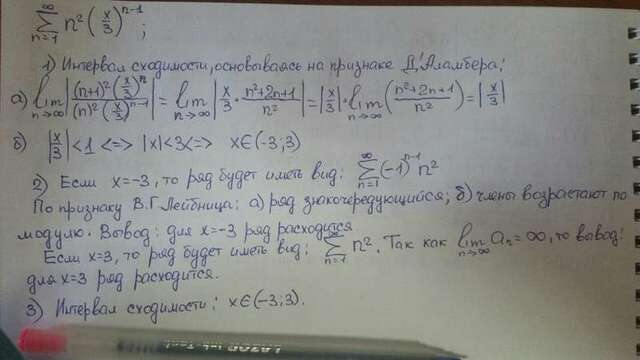 ∑_{n=1}^{∞} n² (x/3)^{n-1};
1) Интервал сходимости, основываясь на признаке Д'Аламбера:
а) lim_{n→∞} |(n+1)² (x/3)^n / (n)² (x/3)^{n-1}| = lim_{n→∞} |x/3 · n²+2n+1/n²| = |x/3| · lim_{n→∞} (n²+2n+1/n²) = |x/3|
б) |x/3| < 1 <=> |x|<3 <=> x∈(-3;3)
2) Если x=-3, то ряд будет иметь вид: ∑_{n=1}^{∞} (-1)^{n-1} n²
По признаку В.Г.Лейбница: а) ряд знакочередующийся; б) члены возрастают по
модулю. Вывод: для x=-3 ряд расходится.
Если x=3, то ряд будет иметь вид: ∑_{n=1}^{∞} n². Так как lim_{n→∞} a_n = ∞, то вывод:
для x=3 ряд расходится.
3) Интервал сходимости: x∈(-3;3).